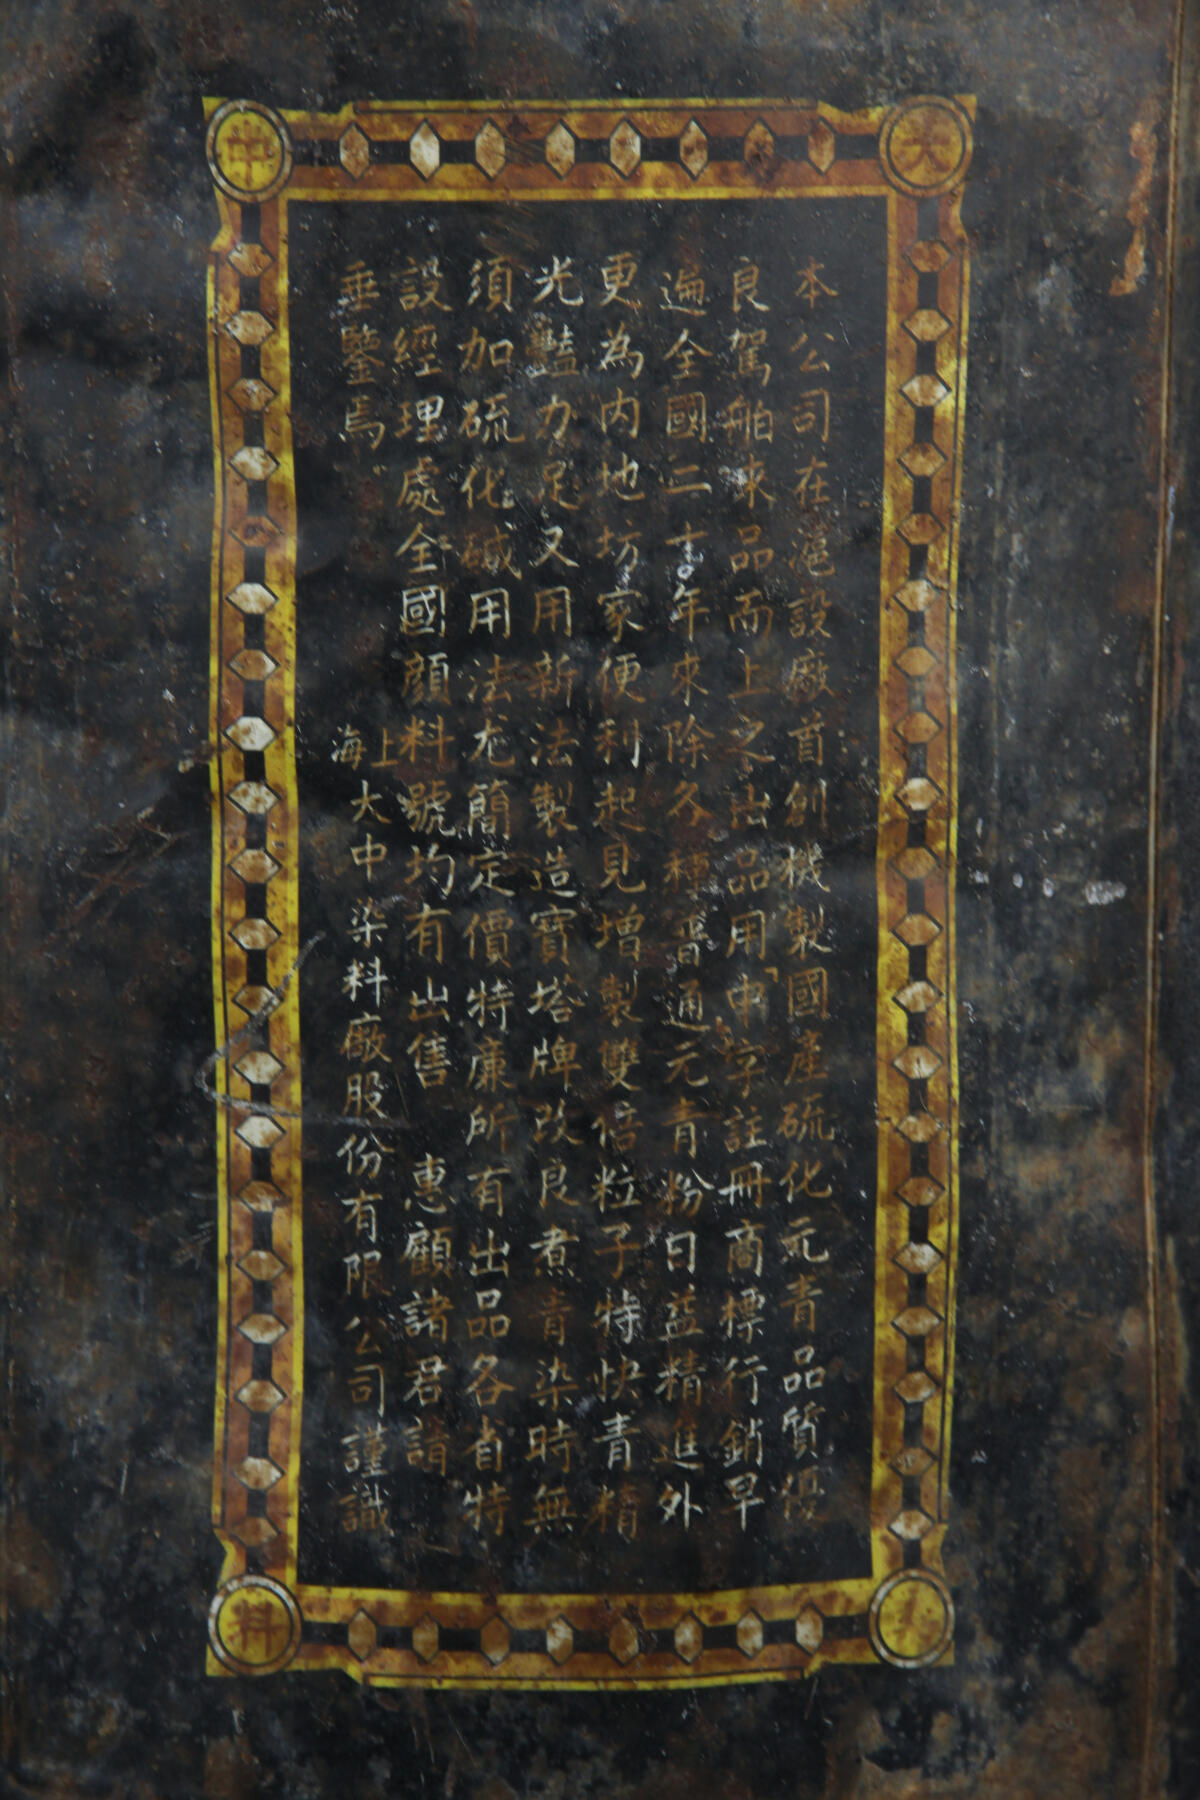 大中
染料
本公司在滬設廠首創機製國產硫化元青品質優
良駕舶來品而上之出品用「中」字註冊商標行銷早
遍全國二十年來除各種普通元青粉日益精進外
更為內地坊家便利起見增製雙倍粒子特快青精
光豔力足又用新法製造寶塔牌改良煮青染時無
須加硫化碱用法尤簡定價特廉所有出品各省特
設經理處全國顏料號均有出售 惠顧諸君請
垂鑒焉
上海大中染料廠股份有限公司謹識